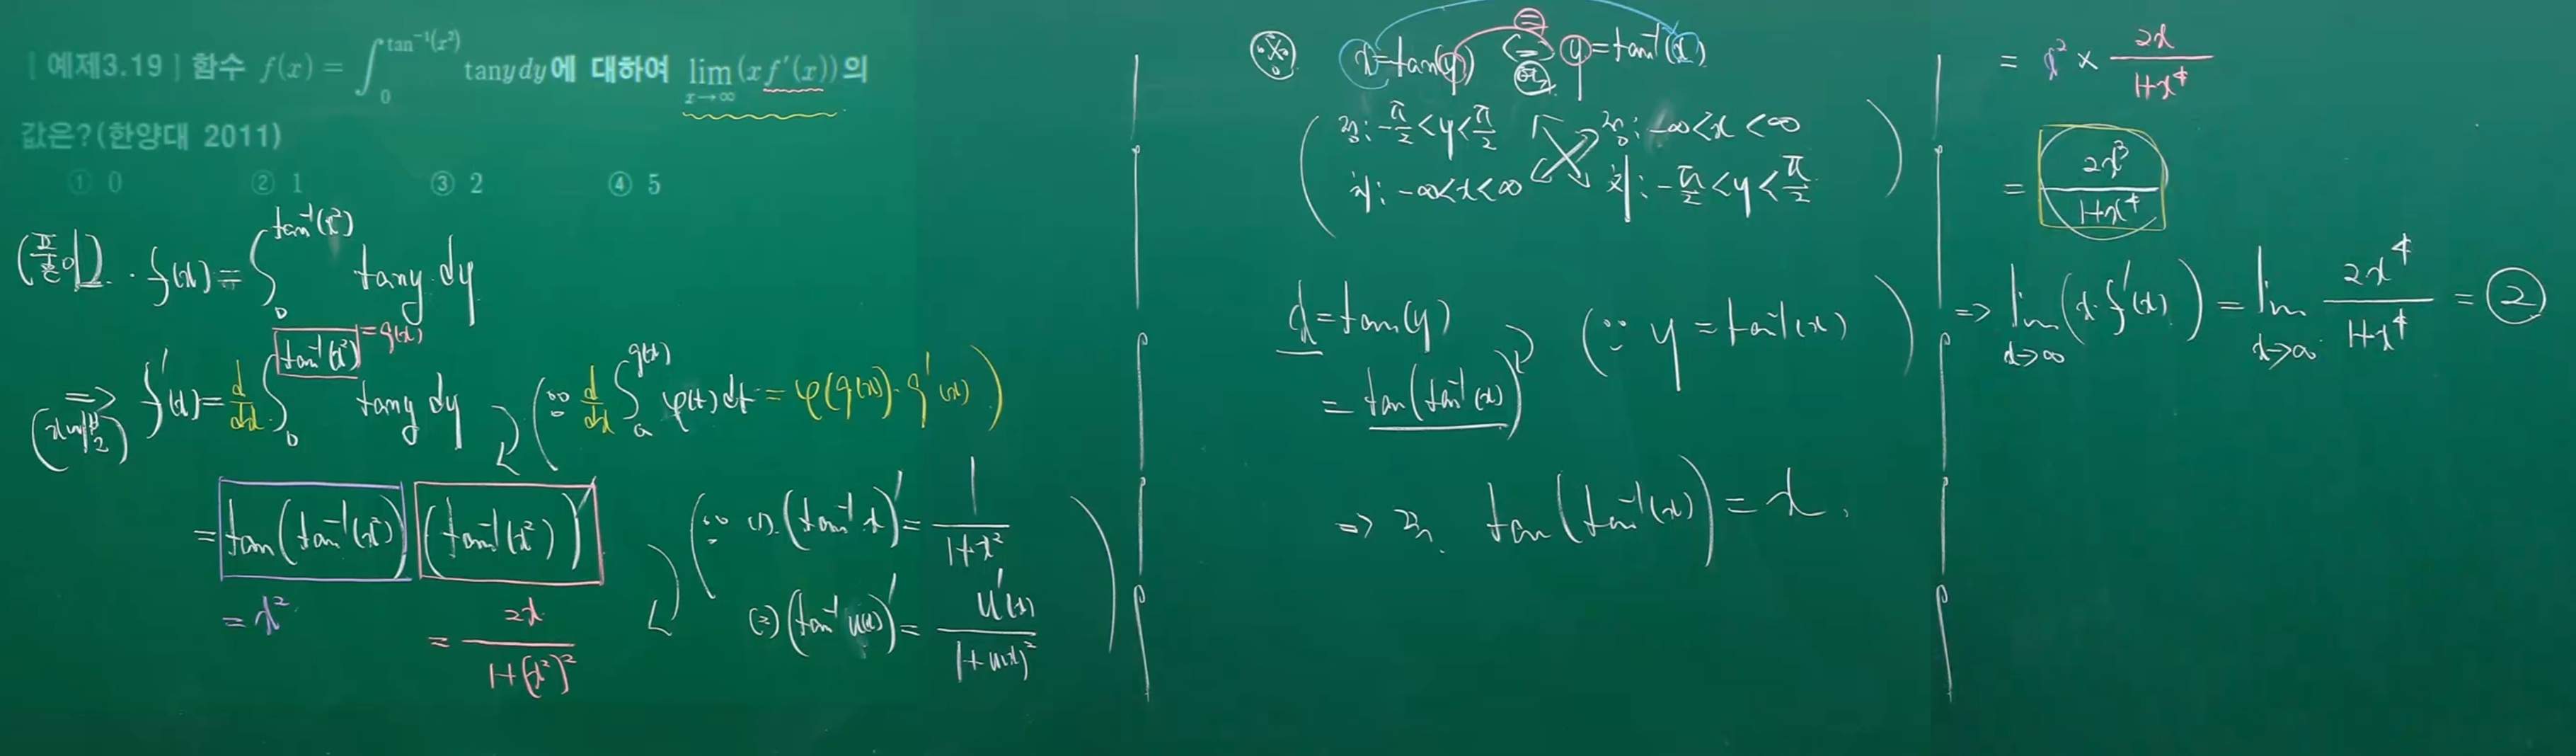 [ 예제3.19 ] 함수 f(x) = ∫₀^{tan⁻¹(x²)} tan y dy에 대하여 lim_{x→∞} (x f′(x))의
값은?(한양대 2011)
① 0 ② 1 ③ 2 ④ 5
· f(x) = ∫₀^{tan⁻¹(x²)} tan y dy
⇒ f′(x) = d/dx ∫₀^{tan⁻¹(x²) = g(x)} tan y dy (∵ d/dx ∫ₐ^{g(x)} φ(t) dt = φ(g(x))·g′(x))
= tan(tan⁻¹(x²)) (tan⁻¹(x²))′
= x²
= 2x / (1+(x²)²)
(∵ (1). (tan⁻¹ x)′ = 1 / (1+x²)
(2) (tan⁻¹ u(x))′ = u′(x) / (1+u(x)²))
※ x = tan(y) ⇔ y = tan⁻¹(x)
: -π/2 < y < π/2 : -∞ < x < ∞
치: -∞ < x < ∞ 치: -π/2 < y < π/2
x = tan(y) (∵ y = tan⁻¹(x))
= tan(tan⁻¹(x))
⇒ 즉. tan(tan⁻¹(x)) = x.
= x² × 2x / (1+x⁴)
= 2x³ / (1+x⁴)
⇒ lim_{x→∞} (x·f′(x)) = lim_{x→∞} 2x⁴ / (1+x⁴) = ②